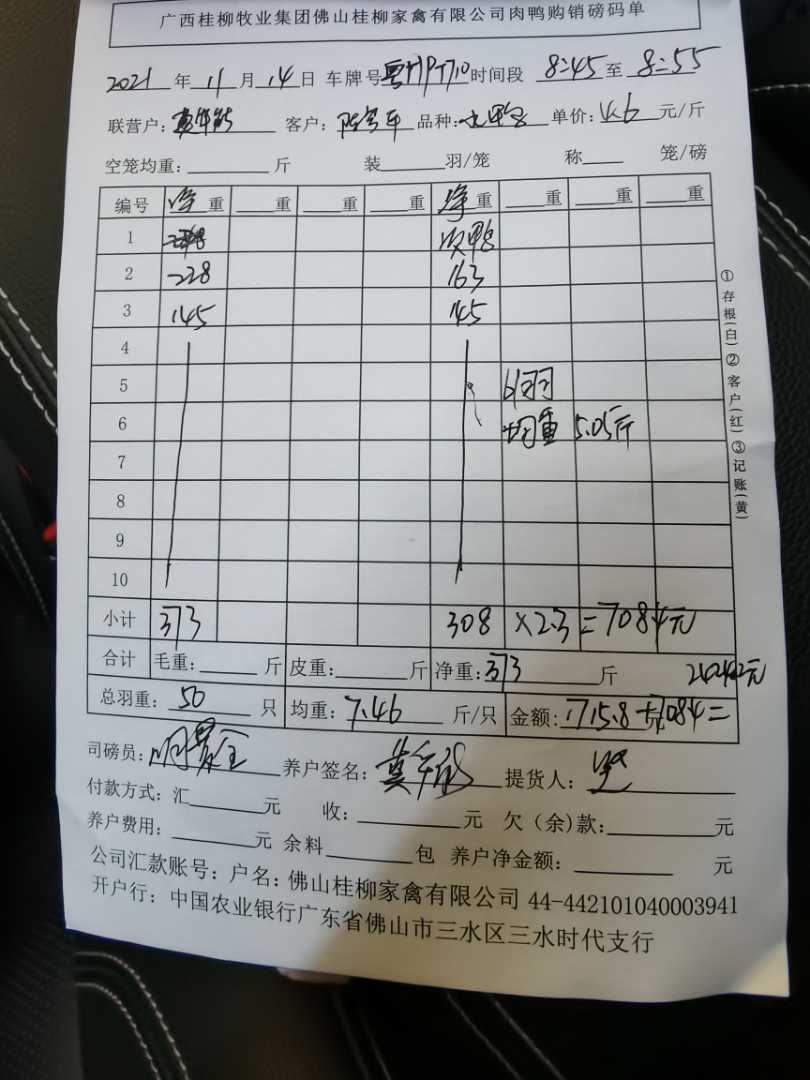 广西桂柳牧业集团佛山桂柳家禽有限公司肉鸭购销磅码单
2021 年 11 月 14 日 车牌号 时间段 8:45 至 8:55
联营户: 客户: 品种: 单价: 4.6 元/斤
空笼均重: 斤 装 羽/笼 称 笼/磅
编号 净重 重 重 重 净重 重 重 重
1 次鸭
2 228 163
3 145 145
4
5 61羽
6 均重 5.05斤
7
8
9
10
小计 373 308 ×2.3=708.4元
合计 毛重: 斤 皮重: 斤 净重: 373 斤 2424.2元
总羽重: 50 只 均重: 7.46 斤/只 金额: 1715.8+708.4=
司磅员: 养户签名: 提货人:
付款方式: 汇 元 收: 元 欠(余)款: 元
养户费用: 元 余料 包 养户净金额: 元
公司汇款账号: 户名: 佛山桂柳家禽有限公司 44-442101040003941
开户行: 中国农业银行广东省佛山市三水区三水时代支行
①存根(白)②客户(红)③记账(黄)